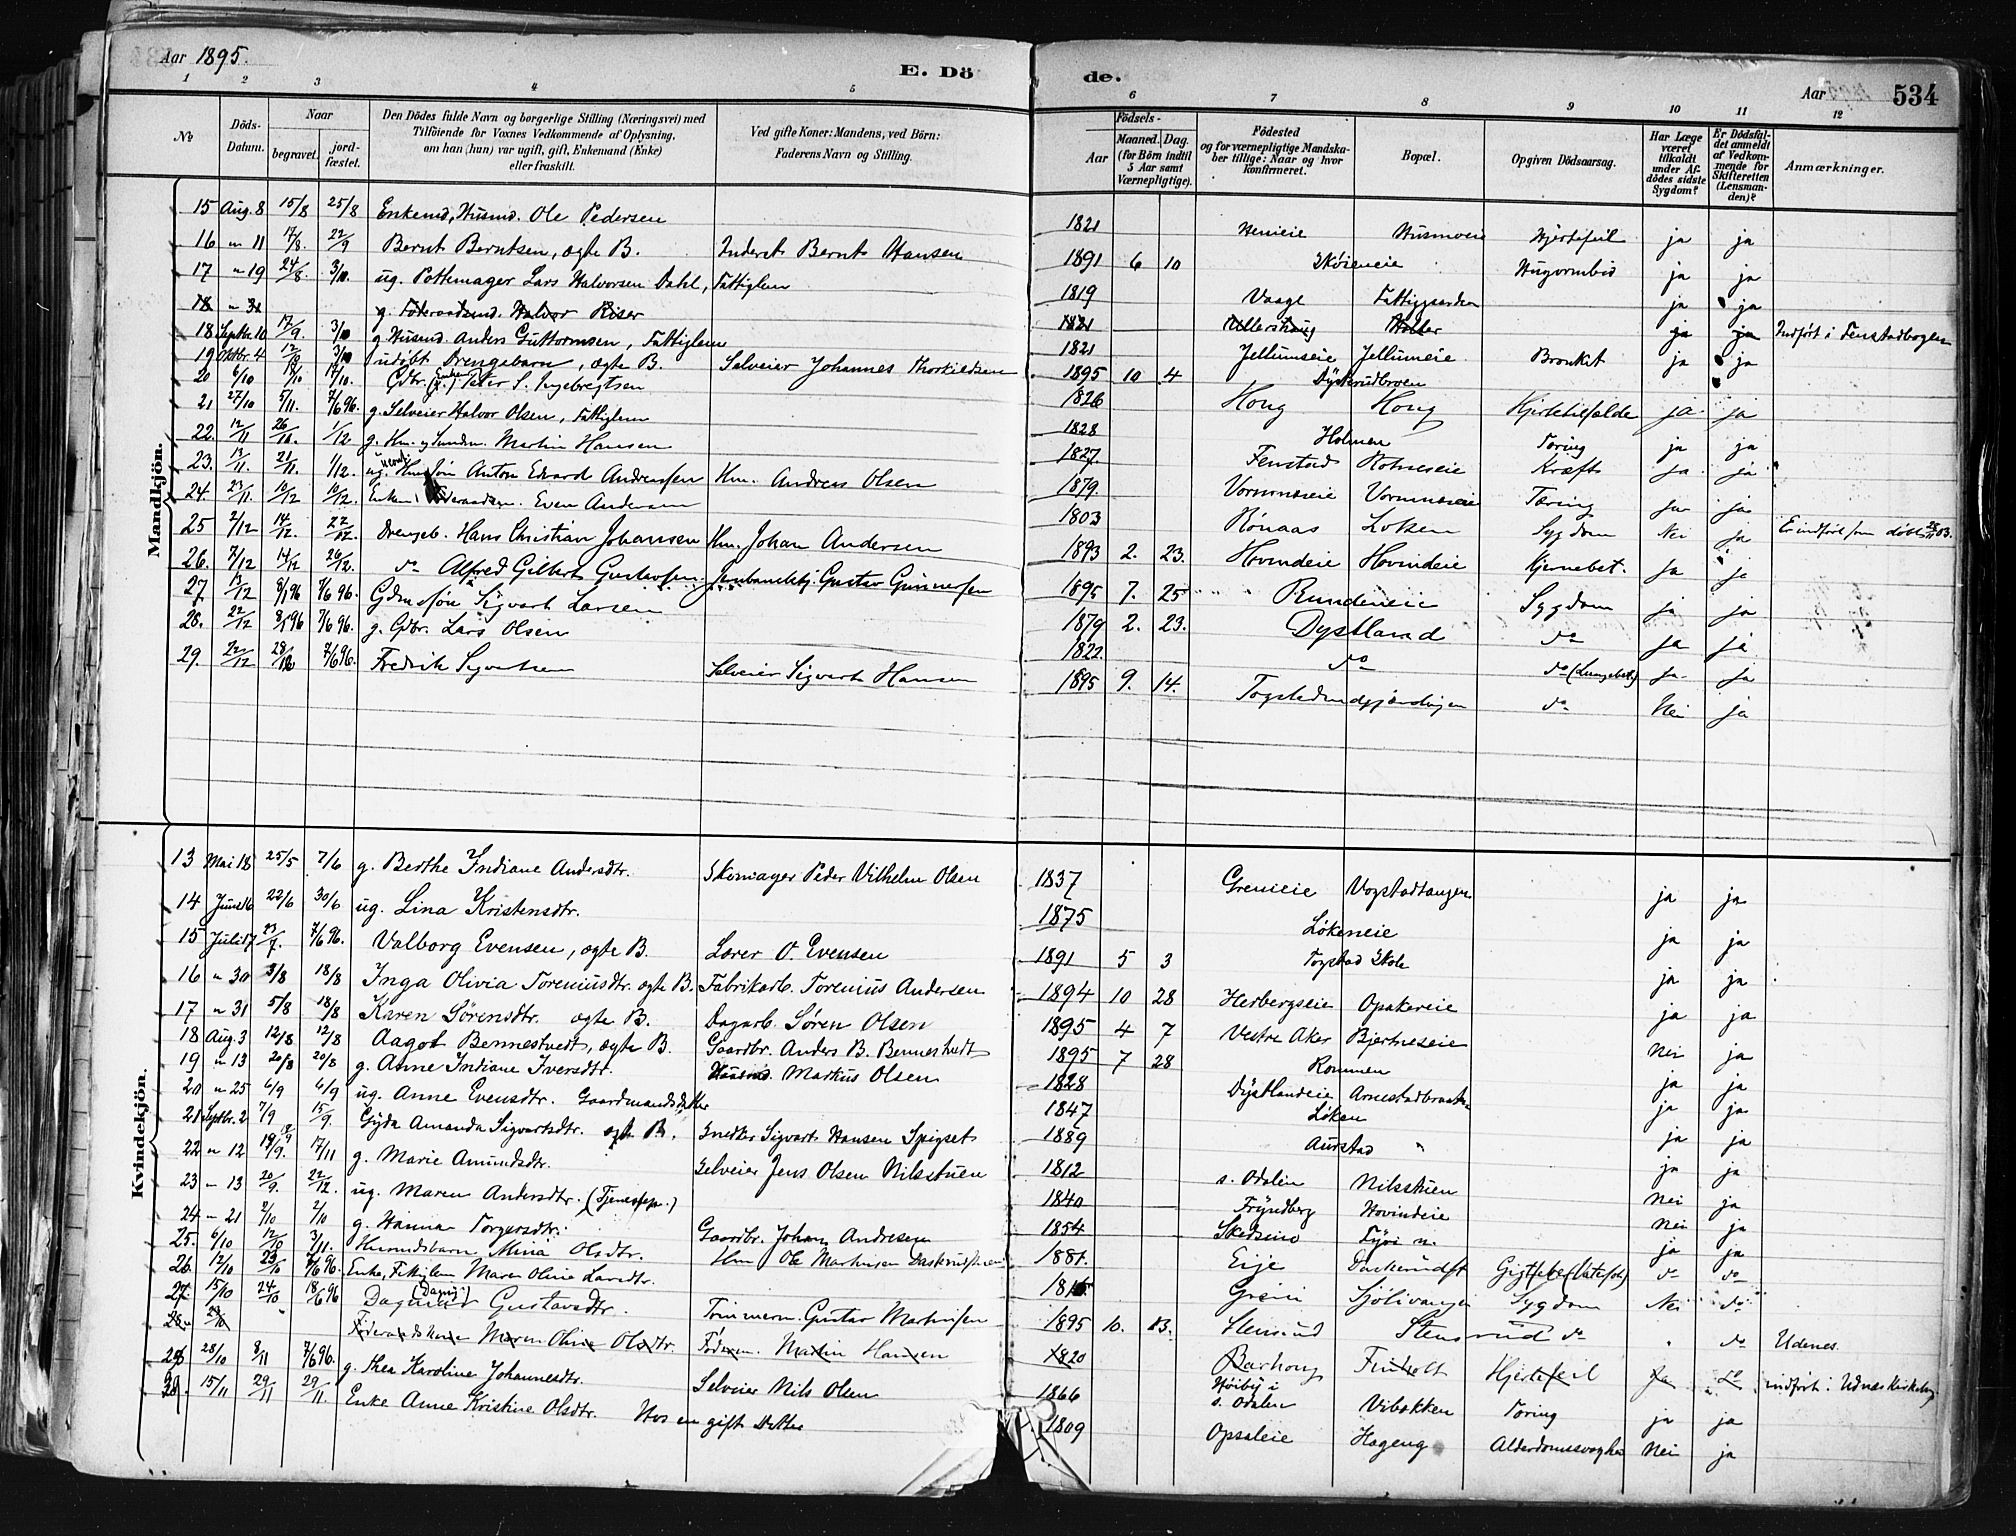 Aar 1895.
E. Döde.
Aar 534
1 2 3 4 5 6 7 8 9 10 11 12
No
Döds-Datum.
Naar
begravet.
jordfæstet.
Den Dödes fulde Navn og borgerlige Stilling (Næringsvei) med
Tilföiende for Voxnes Vedkommende af Oplysning,
om han (hun) var ugift, gift, Enkemand (Enke)
eller fraskilt.
Ved gifte Koner: Mandens, ved Börn:
Faderens Navn og Stilling.
Födsels-
Aar
Maaned. Dag.
(for Börn indtil
5 Aar samt
Værnepligtige).
Födested
og for værnepligtige Mandskaber tillige: Naar og hvor
Konfirmeret.
Bopæl.
Opgiven Dödsaarsag.
Har Læge
været
tilkaldt
under Afdödes sidste
Sygdom?
Er Dödsfaldet anmeldt
af Vedkommende for
Skifteretten
(Lensmanden)?
Anmærkninger.
Mandkjön.
15 Aug. 8 15/8 25/8 Enkemd, Husmd. Ole Pedersen 1821 Henieie Husmoeie Hjertefeil ja ja
16 " 11 17/8 22/9 Bernt Berntsen, ægte B. Inderst Bernt Hansen 1891 6 10 Skøieneie Hugormbid ja ja
17 " 19 24/8 3/10 ug. Pottemager Lars Halvorsen Dahl, Fattiglem 1819 Vaage Fattiggaarden ja ja
18 " 31 g. Föderaadsmd. Halvor Riser 1821 Ullershaug Holter ja ja Indført i Fenstadbogen
18 Septbr. 10 17/9 3/10 g Husmd Anders Guttormsen, Fattiglem 1821 Jellumseie Jellumeie Bronkit ja ja
19 Oktbr. 4 12/10 3/10 udöbt Drengebarn, ægte B. Selveier Johannes Thorkildsen 1895 10 4 Dysterudbroen
20 6/10 Gdbr. Peter S. Ingebregtsen 1826 Hong Hong Hjertelidelse ja ja
21 27/10 5/11. 7/6 96. g. Selveier Halvor Olsen, Fattiglem 1828 Holmen Tæring ja ja
22. 12/11 26/11. 1/12 g. Hm. Martin Hansen 1827. Fenstad Kræft ja ja
23. 13/11. 21/11. 1/12. ug. Hmssøn Anton Edvard Andreassen Hm. Andreas Olsen 1879. Vormnæseie Vormnæseie Tæring ja ja
24. 23/11. 10/12 10/12. Enkem. Föderaadsm. Even Andersen 1803 Rönaas Loken Sygdom Nei ja
25 2/12 14/12. 22/12. Drengeb. Hans Christian Johansen Hm. Johan Andersen 1893 2. 23. Hovindeie Hovindeie ja ja
26. 7/12 14/12 26/12. do Alfred Gilbert Gustavsen. Gustav Gunnersen 1895 7. 25 Rundeneie Sygdom ja ja
27. 13/12 8/1 96 7/6 96. Gdmssøn Sigvart Larsen 1879 2. 23. Dystland do ja ja
28. 22/12 8/1 96 7/6 96. g. Gdbr. Lars Olsen 1822. do do ja ja
29. 22/12 28/12 7/6 96. Fredrik Sigvartsen Selveier Sigvart Hansen 1895 9. 14. do Nei ja
Kvindekjön.
13 Mai 18 25/5 7/6 g. Berthe Indiane Andersdtr. Skomager Peder Vilhelm Olsen 1837 Grenieie Vogstadtangen ja ja
14 Juni 16 22/6 30/6 ug. Lina Kristensdtr. 1875 Løkeneie ja ja
15 Juli 17 23/7. 7/6 96. Valborg Evensen, ægte B. Lærer O. Evensen 1891 5 3 Togstad Skole ja ja
16 " 30 3/8 18/8 Inga Olivia Toreniusdtr. ægte B. Fabrikarb. Torenius Andersen 1894 10 28 Herbergseie Opakereie ja ja
17 " 31 5/8 18/8 Karen Sörensdtr. ægte B. Dagarb. Søren Olsen 1895 4 7 Vestre Aker Bjertneseie Nei ja
18 Aug. 3 12/8 12/8 Aagot Bennestvedt, ægte B. Gaardbr. Anders B. Bennestvedt 1895 7 28 Rommen ja ja
19 " 13 20/8 20/8 g. Anne Indiane Iversdtr. Husmd. Markus Olsen 1828 Dystlandeie ja ja
20 " 25 6/9 6/9 ug. Anne Evensdtr. Gaardmandsdatter 1847 Löken ja ja
21 Septbr. 2 7/9 15/9. Gyda Amanda Sigvartsdtr. ægte B. Snedker Sigvart Hansen Spigset 1889 Aurstad " ja ja
22 " 12 17/11 g. Marie Amundsdtr. Selveier Jens Olsen Nilsstuen 1812 s. Odalen Nilsstuen Nei ja
23 " 13 20/9. 22/12. ug. Maren Andersdtr. 1840 Fryndberg Hovindeie Nei ja
24 " 21 2/10 2/10 g. Hanna Torgersdtr. Gaardbr. Johan Andresen 1854 Skedsmo ja ja
25. 6/10 12/10 3/11. Mina Olsdtr. Hm Ole Martinsen 1881. Eije do do
26. 12/10 23/10 7/6 96. Enke, Fattiglem Maren Oline Larsdtr. Greni Sygdom Nei do
27. 15/10 24/10 18/6 96 Dagmar (Dagny) Gustavsdtr. Tömmerm. Gustav Martinsen 1895 10. 13. Stensrud Stensrud do " do Udenes.
Föderaadskone Maren Oline Olsdtr. Föderm. Martin Hansen 1820 Hjertefeil ja indført i Udnes Kirkebog
28/10 8/11 7/6 96. g. Thea Karoline Johannesdtr. Selveier Nils Olsen 1866 Höiby i s. Odalen Vibakken Tæring ja ja
15/11 29/11 29/11. Enke Anne Kristine Olsdtr. Hos en gift Datter 1809 Opsaleie Hageng Alderdomssvaghed Nei ja